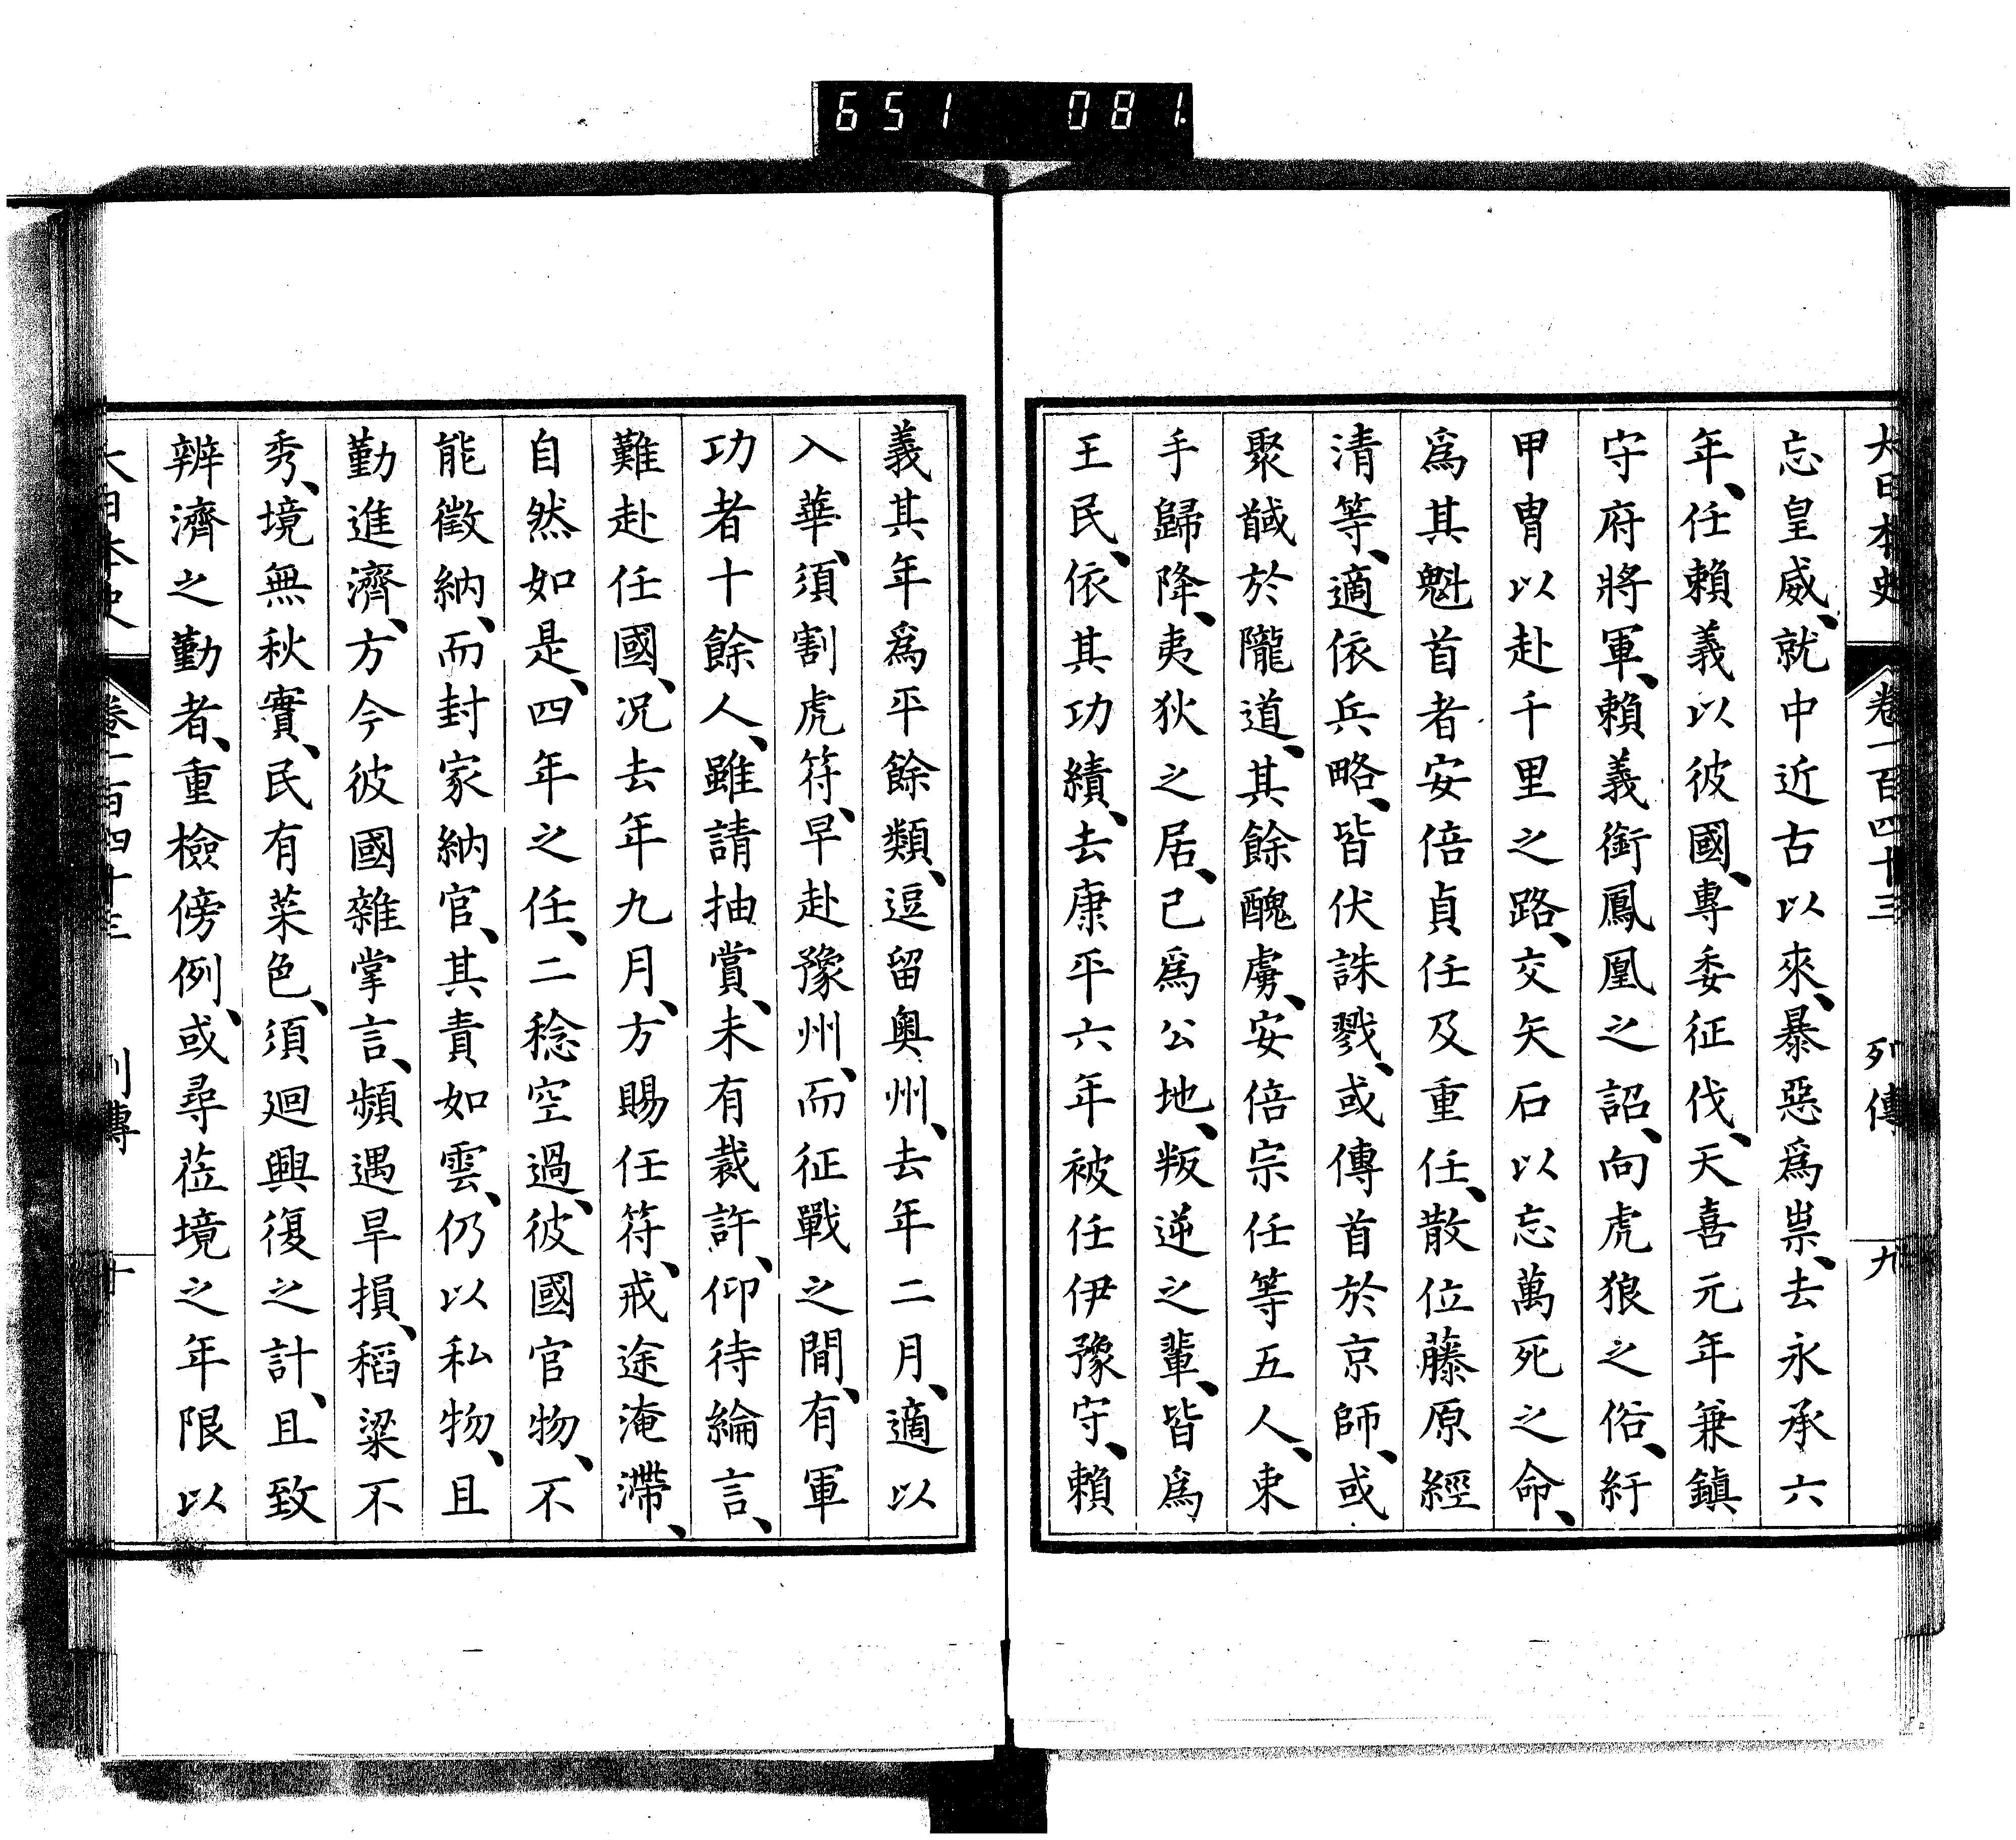 651 081.
大日本史 卷一百四十三 列傳 九
忘皇威、就中近古以來、暴惡爲祟、去永承六
年、任賴義以彼國、專委征伐、天喜元年兼鎭
守府將軍、賴義銜鳳凰之詔、向虎狼之俗、紆
甲冑以赴千里之路、交矢石以忘萬死之命、
爲其魁首者安倍貞任及重任、散位藤原經
清等、適依兵略、皆伏誅戮、或傳首於京師、或
聚馘於隴道、其餘醜虜、安倍宗任等五人、束
手歸降、夷狄之居、已爲公地、叛逆之輩、皆爲
王民、依其功績、去康平六年被任伊豫守、賴
義其年爲平餘類、逗留奧州、去年二月、適以
入華、須割虎符、早赴豫州、而征戰之間、有軍
功者十餘人、雖請抽賞、未有裁許、仰待綸言、
難赴任國、况去年九月、方賜任符、戒途淹滯、
自然如是、四年之任、二稔空過、彼國官物、不
能徵納、而封家納官、其責如雲、仍以私物、且
勤進濟、方今彼國雜掌言、頻遇旱損、稻粱不
秀、境無秋實、民有菜色、須廻興復之計、且致
辨濟之勤者、重檢傍例、或尋莅境之年限以
大日本史 卷一百四十三 列傳 十